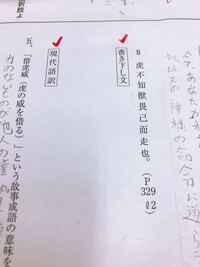 今、あなたが
天の神様の命令に逆ら
Ⅱ 虎不知獣畏己而走也。(P329 ℓ2)
書き下し文
現代語訳
五、「借虎威(虎の威を借る)」という故事成語の意味を
力のなどのが他人の